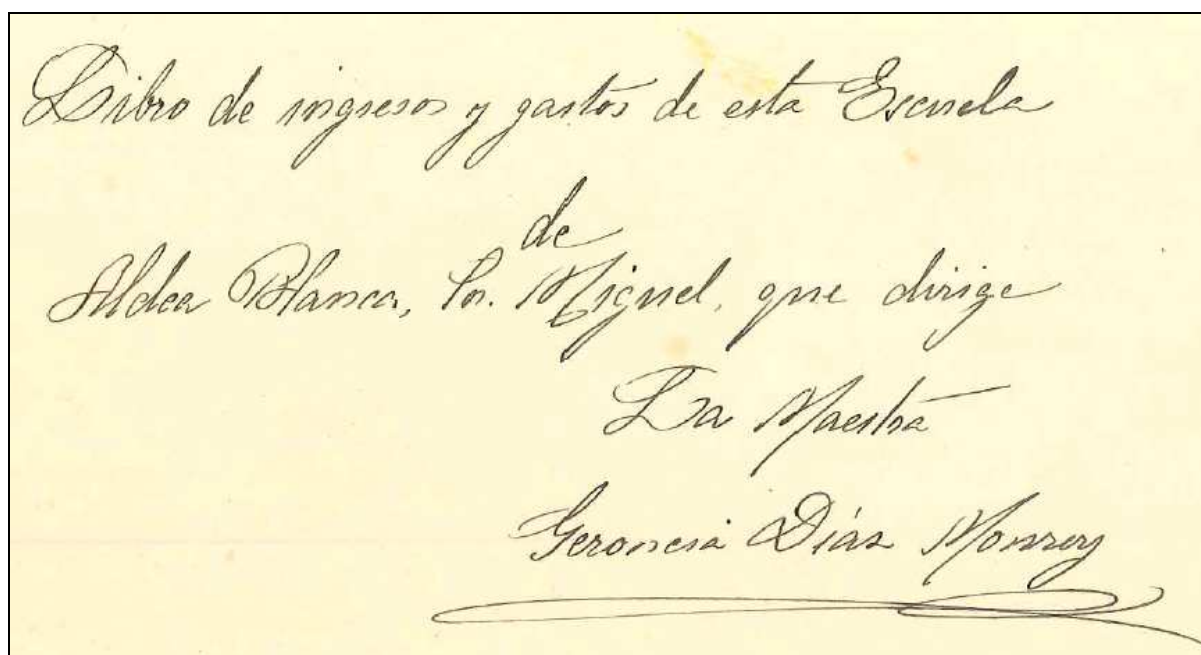 Libro de ingresos y gastos de esta Escuela
de
Aldea Blanca, Sn. Miguel, que dirige
La Maestra
Geroncia Díaz Monroy